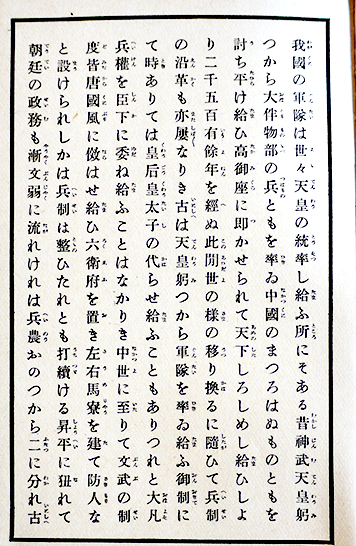 我國の軍隊は世々天皇の統率し給ふ所にそある昔神武天皇躬
つから大伴物部の兵ともを率ゐ中國のまつろはぬものともを
討ち平け給ひ高御座に即かせられて天下しろしめし給ひしよ
り二千五百有餘年を經ぬ此間世の様の移り換るに隨ひて兵制
の沿革も亦屢なりき古は天皇躬つから軍隊を率ゐ給ふ御制に
て時ありては皇后皇太子の代らせ給ふこともありつれと大凡
兵權を臣下に委ね給ふことはなかりき中世に至りて文武の制
度皆唐國風に傚はせ給ひ六衛府を置き左右馬寮を建て防人な
と設けられしかは兵制は整ひたれとも打續ける昇平に狃れて
朝廷の政務も漸文弱に流れけれは兵農おのつから二に分れ古